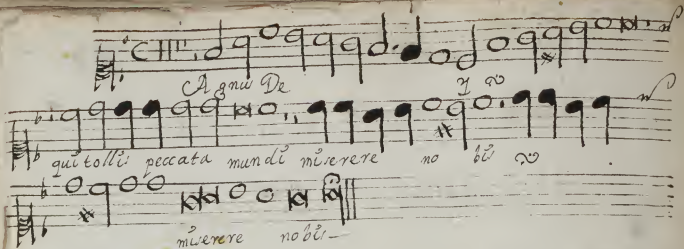 Agnus De I
qui tollis peccata mundi miserere no bis
miserere nobis